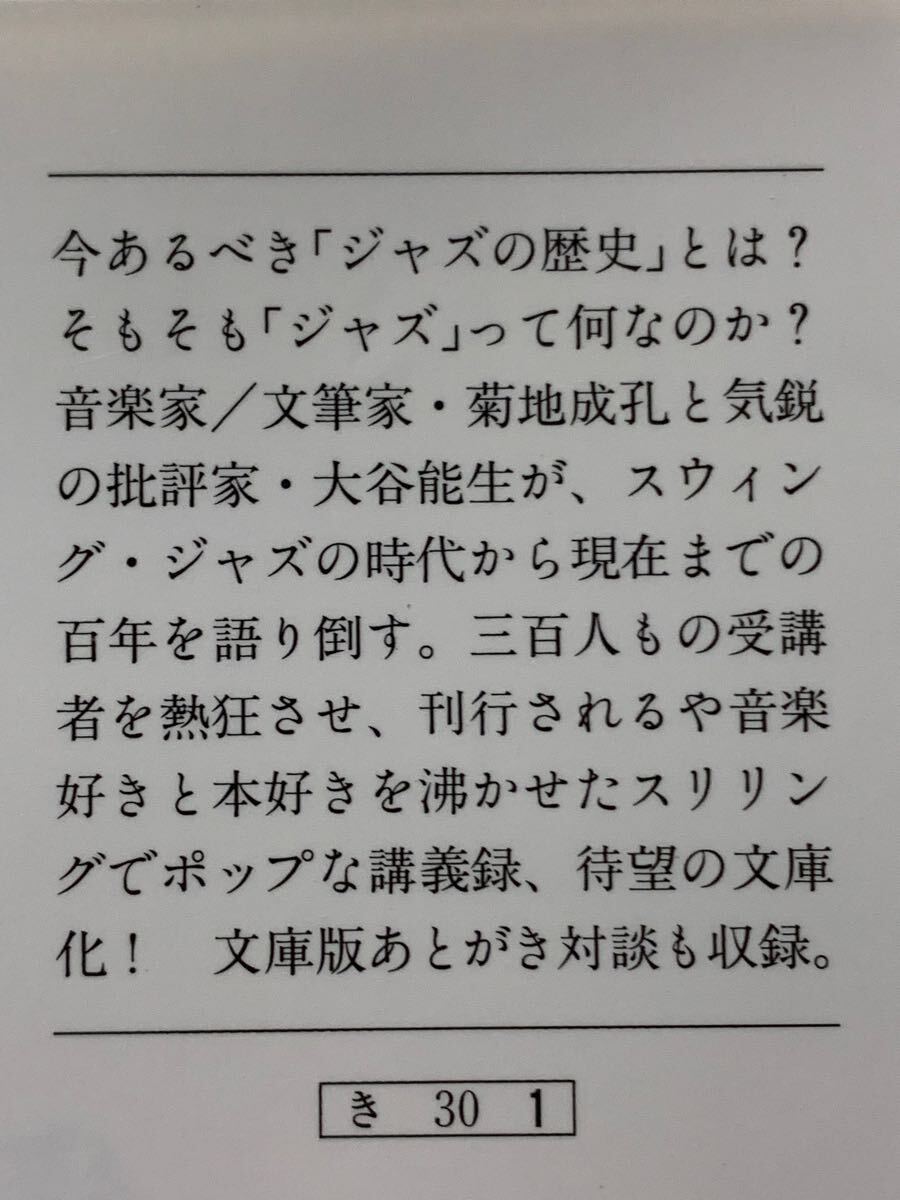 今あるべき「ジャズの歴史」とは？
そもそも「ジャズ」って何なのか？
音楽家／文筆家・菊地成孔と気鋭
の批評家・大谷能生が、スウィン
グ・ジャズの時代から現在までの
百年を語り倒す。三百人もの受講
者を熱狂させ、刊行されるや音楽
好きと本好きを沸かせたスリリン
グでポップな講義録、待望の文庫
化！　文庫版あとがき対談も収録。
き 30 1